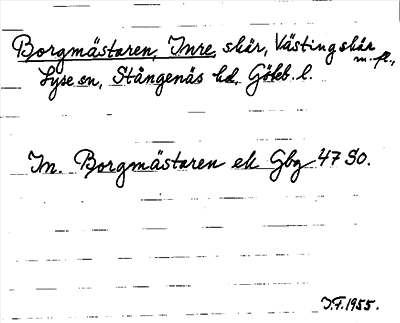 Borgmästaren, Inre, skär, Västingskär m. fl.,
Lyse sn, Stångenäs hd, Göteb. l.
In. Borgmästaren ek Gbg 47 SO.
J.F. 1955.